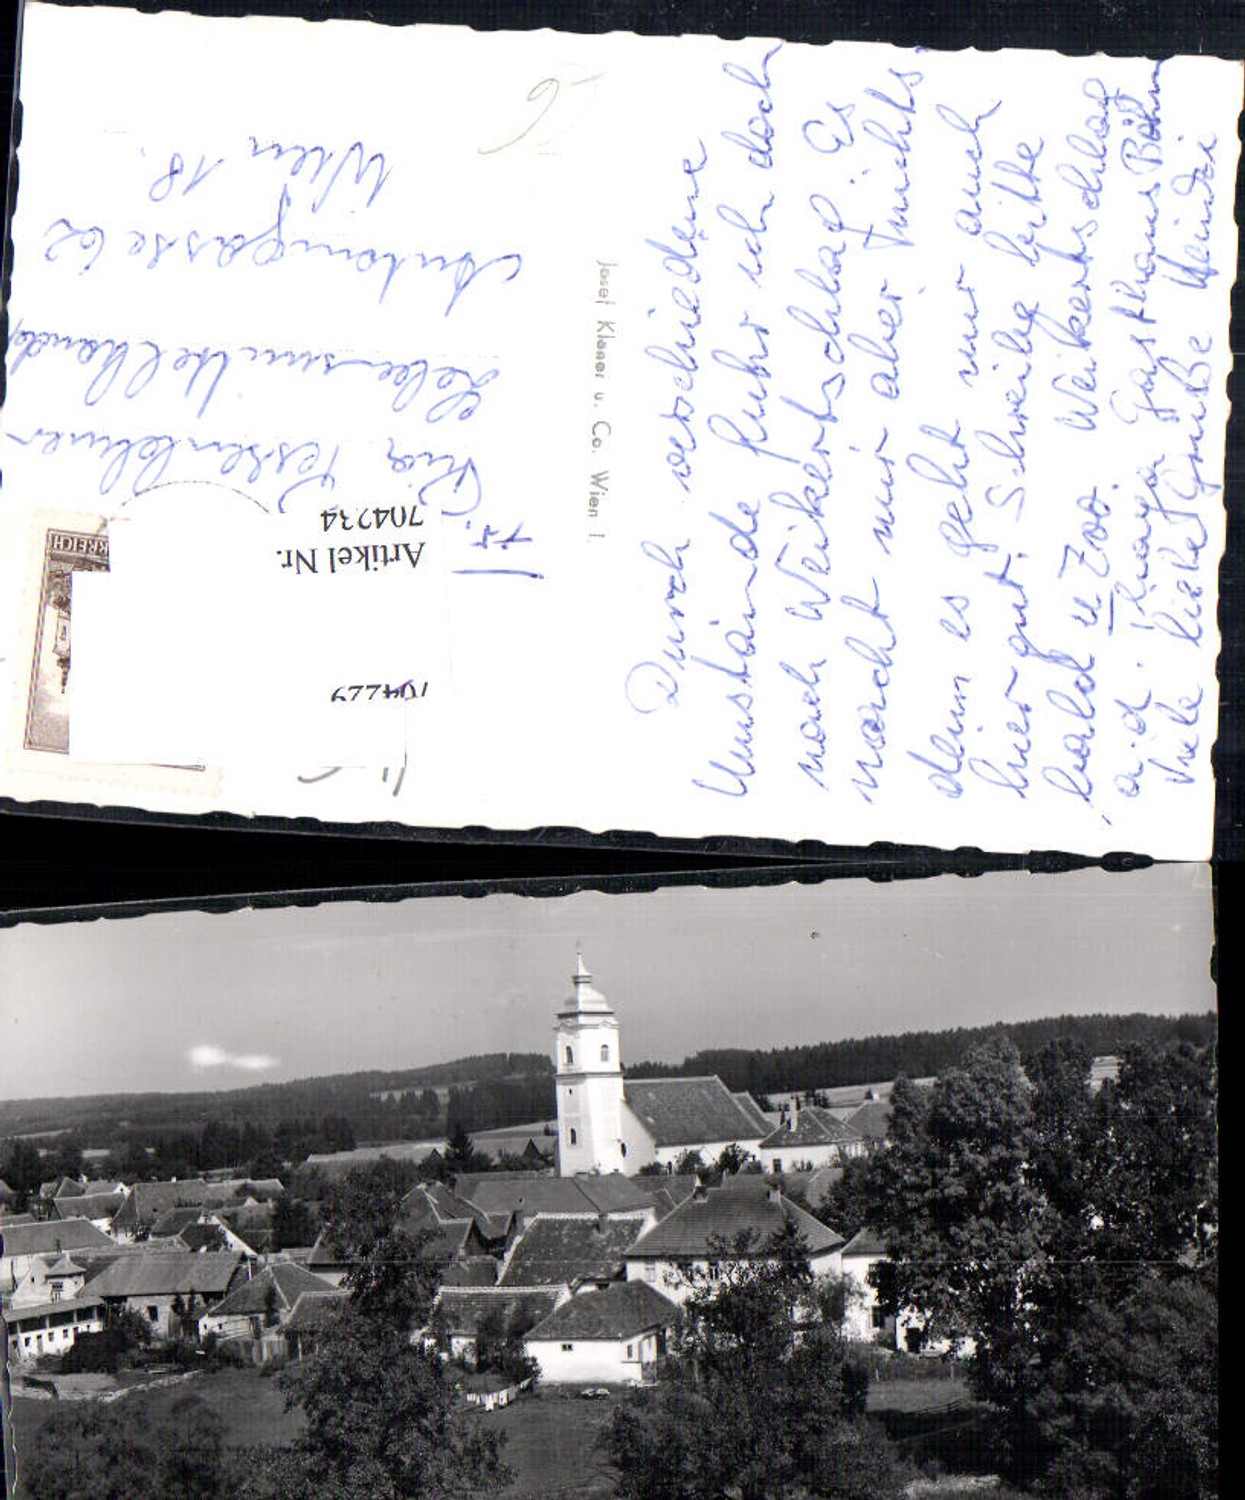 Durch verschiedene
Umstände fuhr ich doch
nach Weikertschlag. Es
macht mir aber nichts
denn es geht mir auch
hier gut. Schreibe bitte
bald u Zwo. Weikertschlag
a. d. Thaya Gasthaus Böhm
Viele liebe Grüße Heindi
Josef Klener u. Co. Wien I.
Fr.
Lebensmittelhandl
Antonigasse 62
Wien 18.
6
Artikel Nr.
704234
704229
RREICH